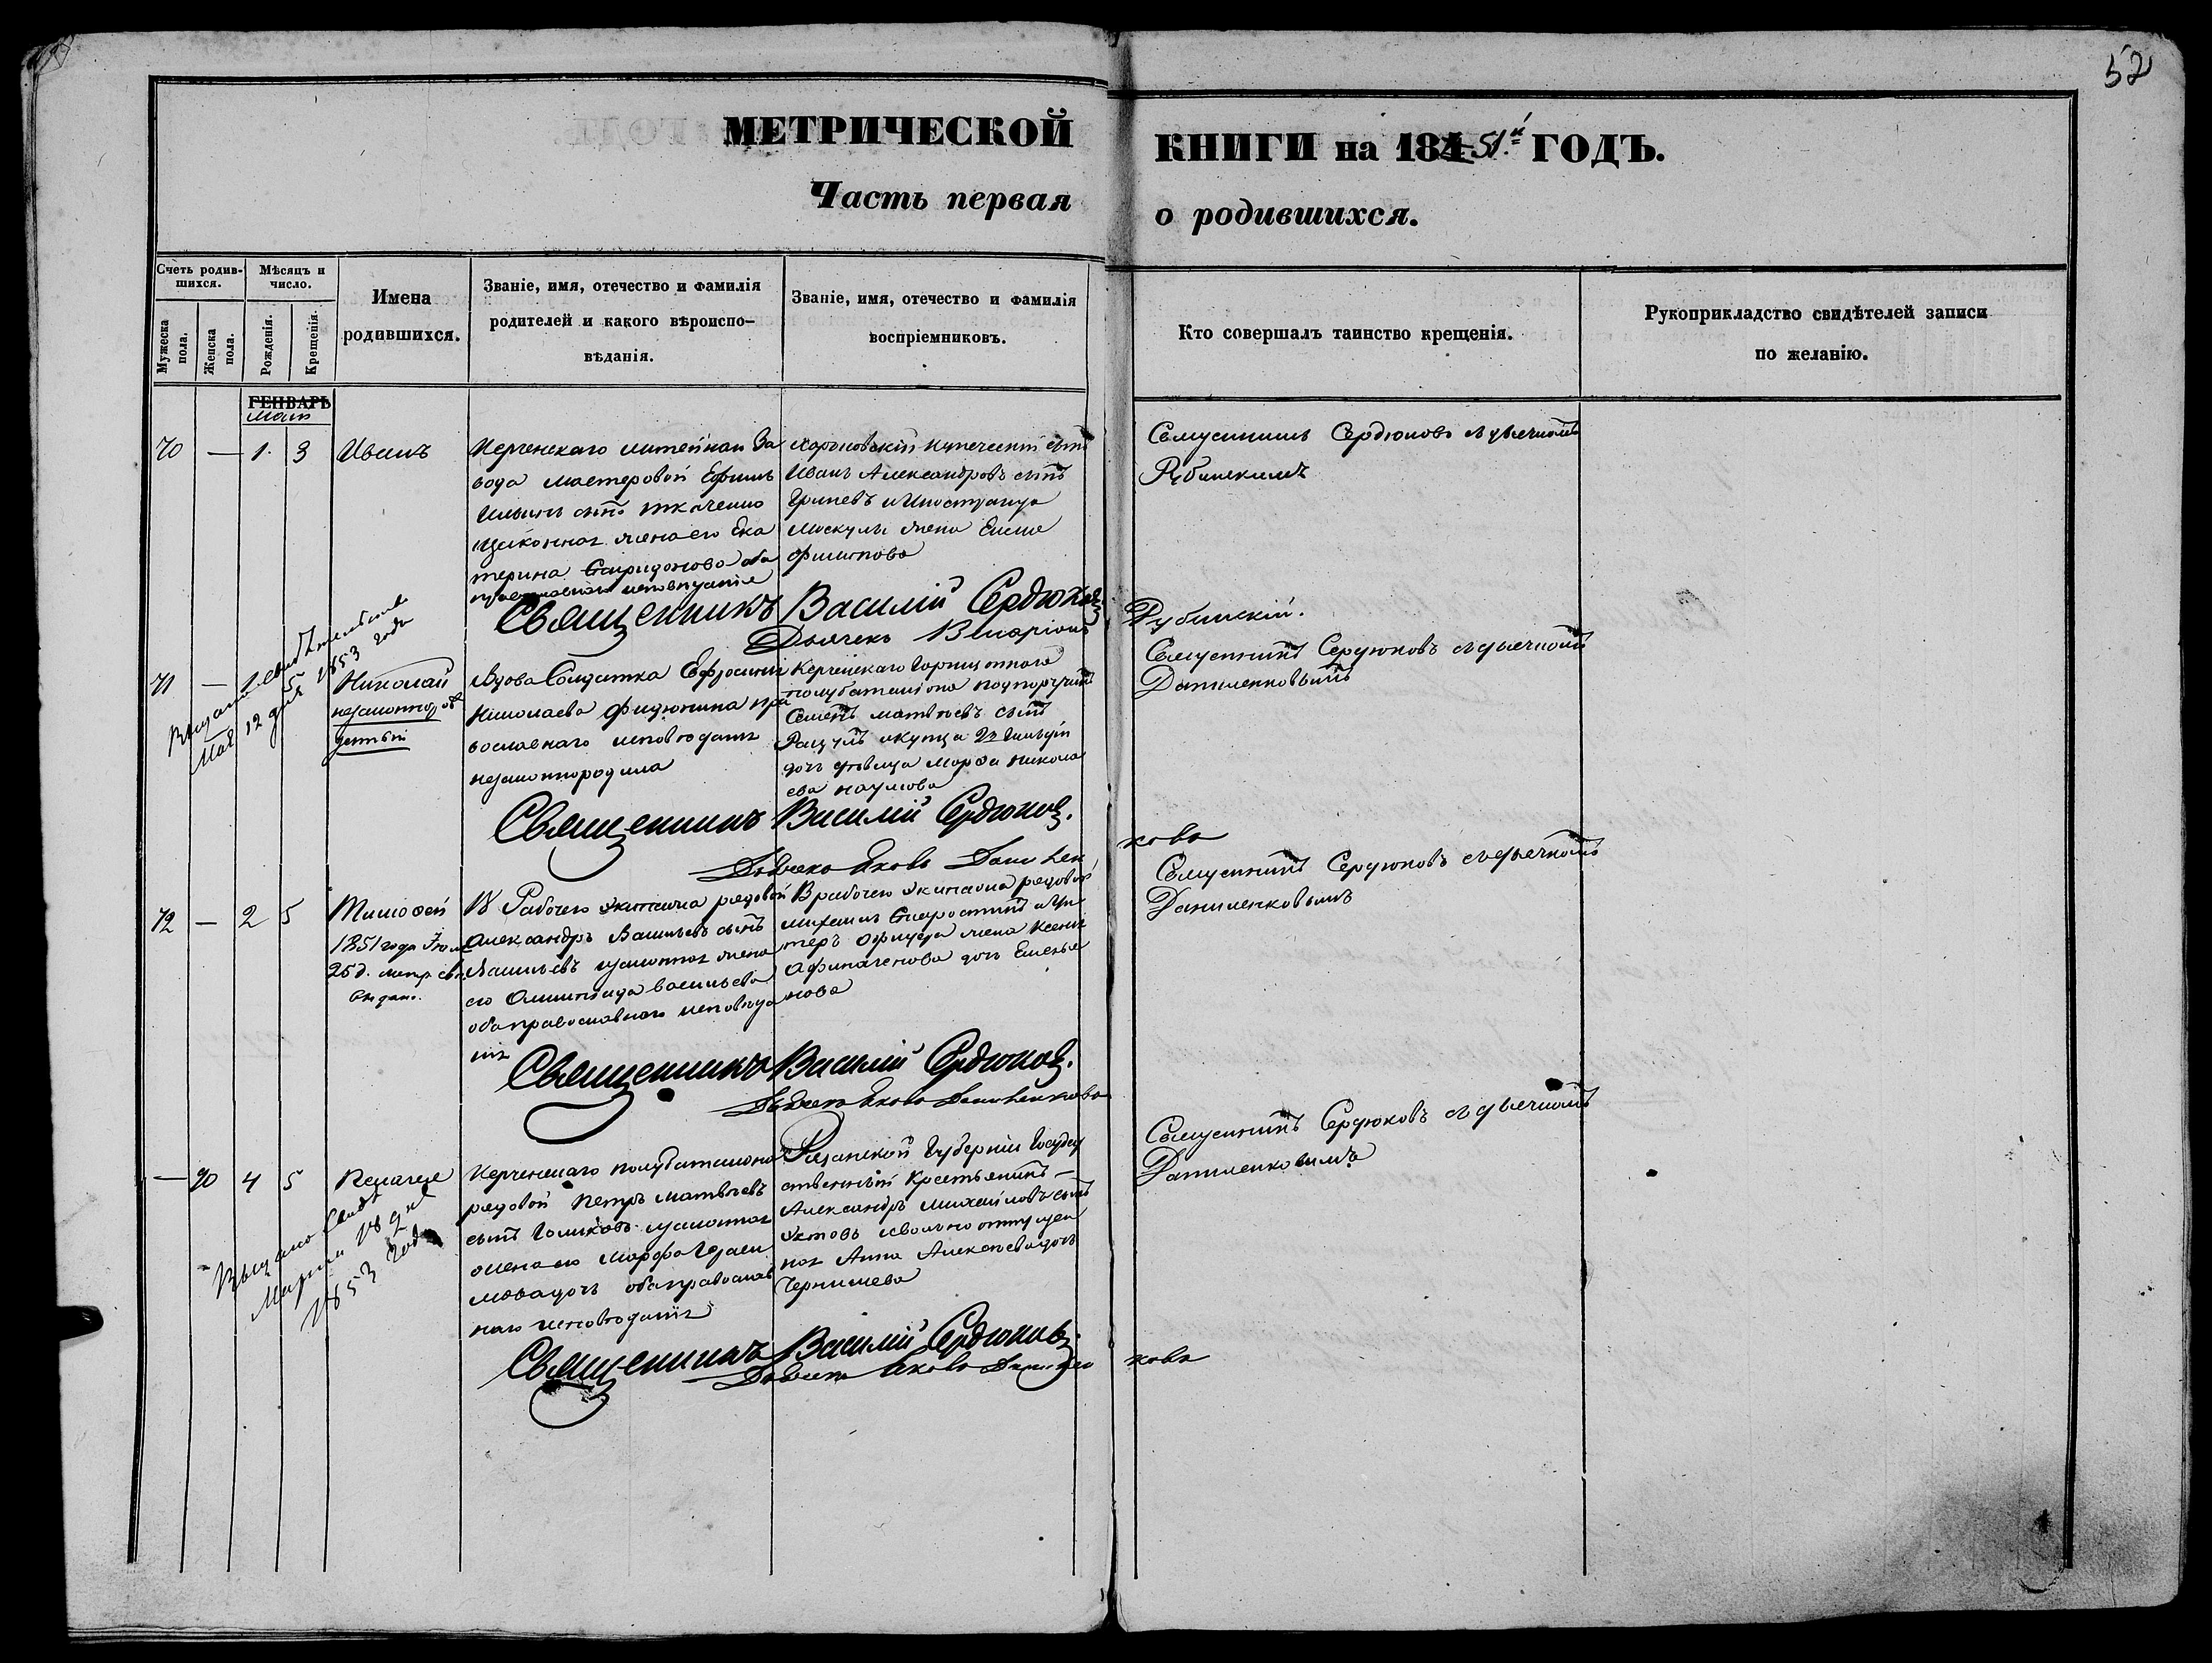 52
МЕТРИЧЕСКОЙ КНИГИ на 184 51.й ГОДЪ.
Часть первая о родившихся.
Счетъ родив-
шихся.
Мужеска
пола.
Женска
пола.
Мѣсяцъ и
число.
Рожденія.
Крещенія.
Имена
родившихся.
Званіе, имя, отечество и фамилія
родителей и какого вѣроиспо-
вѣданія.
Званіе, имя, отечество и фамилія
воспріемниковъ.
Кто совершалъ таинство крещенія.
Рукоприкладство свидѣтелей записи
по желанію.
ГЕНВАРЬ
Маій
70 — 1. 3 Иванъ
Керченскаго литейнаго За
вода мастеровой Ефимъ
Ильинъ сынъ Ткаченко
изаконная жена его Ека
терина Спиридонова оба
православнаго исповѣданія
Харьковскій купеческій сынъ
Иванъ Александровъ сынъ
Гриневъ и Иностранца
жена Елена
Филипова
Священникъ Сердюковъ съ дьячкомъ
Рубинскимъ
Священникъ Василій Сердюковъ
Дьячекъ Иларіонъ Рубинскій.
71 — 1 5 Николай
незаконнорож
денный
Выдано свидѣтельство
Мая 12 дня 1853 года
Вдова Солдатка Ефросинія
Николаева Фидюнина пра
вославнаго исповѣданія
незаконнородила
Керченскаго Гарнизоннаго
полубаталіона подпоручикъ
Семенъ Матвѣевъ сынъ
и купца 2й Гильдіи
дочь дѣвица Марфа Никола
ева Наумова
Священникъ Сердюковъ съ дьячкомъ
Даниленковымъ
Священникъ Василій Сердюковъ.
Дьячекъ Яковъ Даниленковъ
72 — 2 5 Тимофей
1851 года Іюля
25 д. метр. свид.
выдано.
18 Рабочего Экипажа рядовой
Александръ Васильевъ сынъ
Васильевъ изаконная жена
его Олимпіада Васильева
оба православнаго исповѣда
нія
18 рабочего Экипажа рядовой
Михаилъ Старостинъ и Ун
теръ Офицера жена Ксенія
Афанасиева дочь Емелья
нова
Священникъ Сердюковъ съ дьячкомъ
Даниленковымъ
Священникъ Василій Сердюковъ.
Дьячекъ Яковъ Даниленковъ
— 70 4 5 Пелагея
Выдано свидѣт
Марта 18 дня
1853 года
Керченскаго полубаталіона
рядовой Петръ Матвѣевъ
сынъ Голиковъ изаконная
жена его Марфа
мова дочь оба православ
наго исповѣданія
Рязанской Губерніи Государ
ственный Крестьянинъ —
Александръ Михайловъ сынъ
и вольно отпущен
ная Анна Алексѣева дочь
Чернишева
Священникъ Сердюковъ съ дьячкомъ
Даниленковымъ
Священникъ Василій Сердюковъ.
Дьячекъ Яковъ Даниленковъ